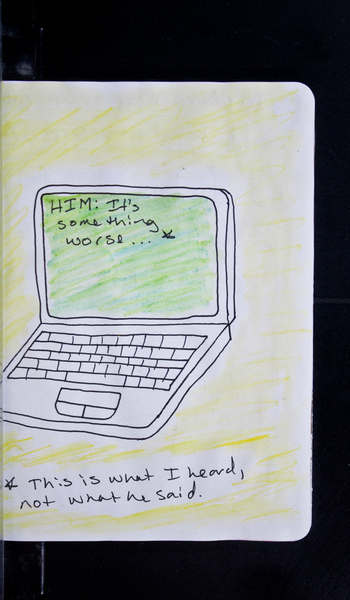 HIM: It's
something
worse... *
* This is what I heard,
not what he said.